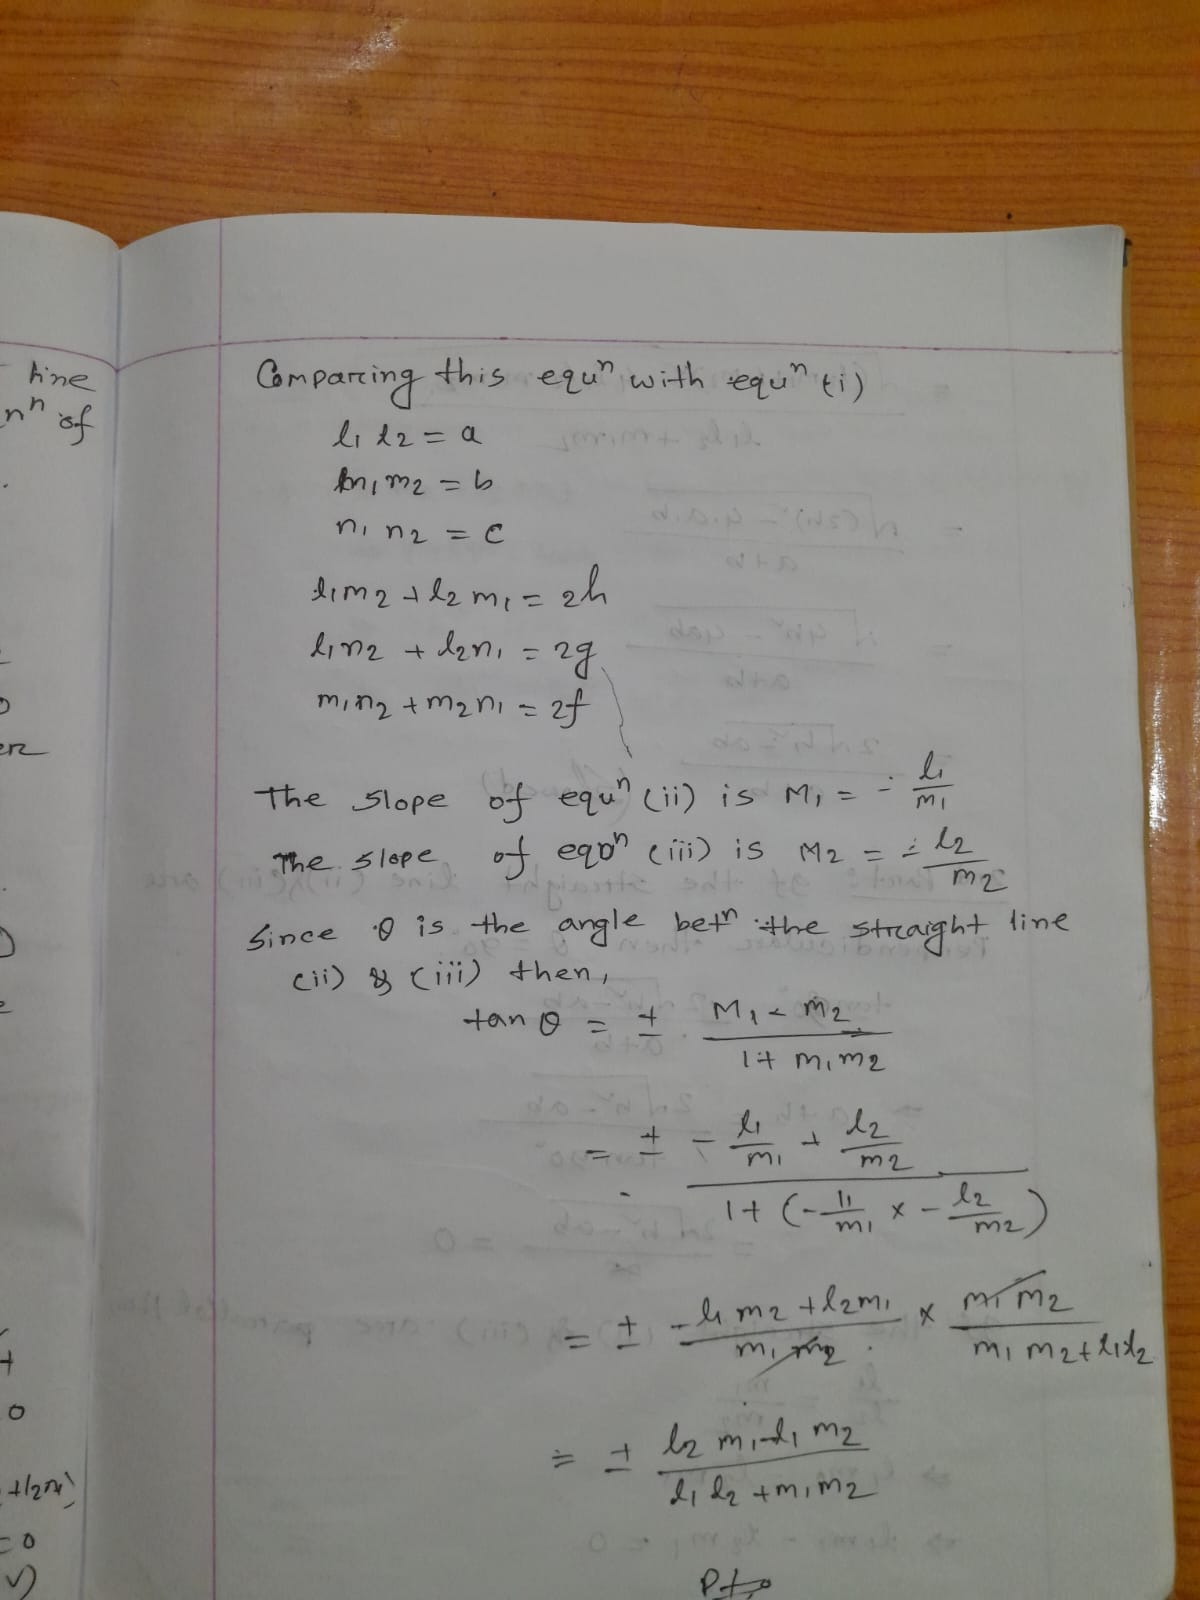 line
nⁿ of
er
+l₂n₁)
= 0
Comparing this equⁿ with equⁿ (i)
l₁ l₂ = a
m₁m₂ = b
n₁ n₂ = c
l₁m₂ + l₂m₁ = 2h
l₁n₂ + l₂n₁ = 2g
m₁n₂ + m₂n₁ = 2f
The slope of equⁿ (ii) is M₁ = - l₁/m₁
The slope of equⁿ (iii) is M₂ = - l₂/m₂
Since θ is the angle betⁿ the straight line
(ii) & (iii) then,
tan θ = ± M₁ - M₂ / 1 + m₁m₂
= ± - l₁/m₁ + l₂/m₂ / 1 + (- l₁/m₁ × - l₂/m₂)
= ± -l₁m₂ + l₂m₁ / m₁m₂ × m₁m₂ / m₁m₂ + l₁l₂
= ± l₂m₁ - l₁m₂ / l₁l₂ + m₁m₂
Pto